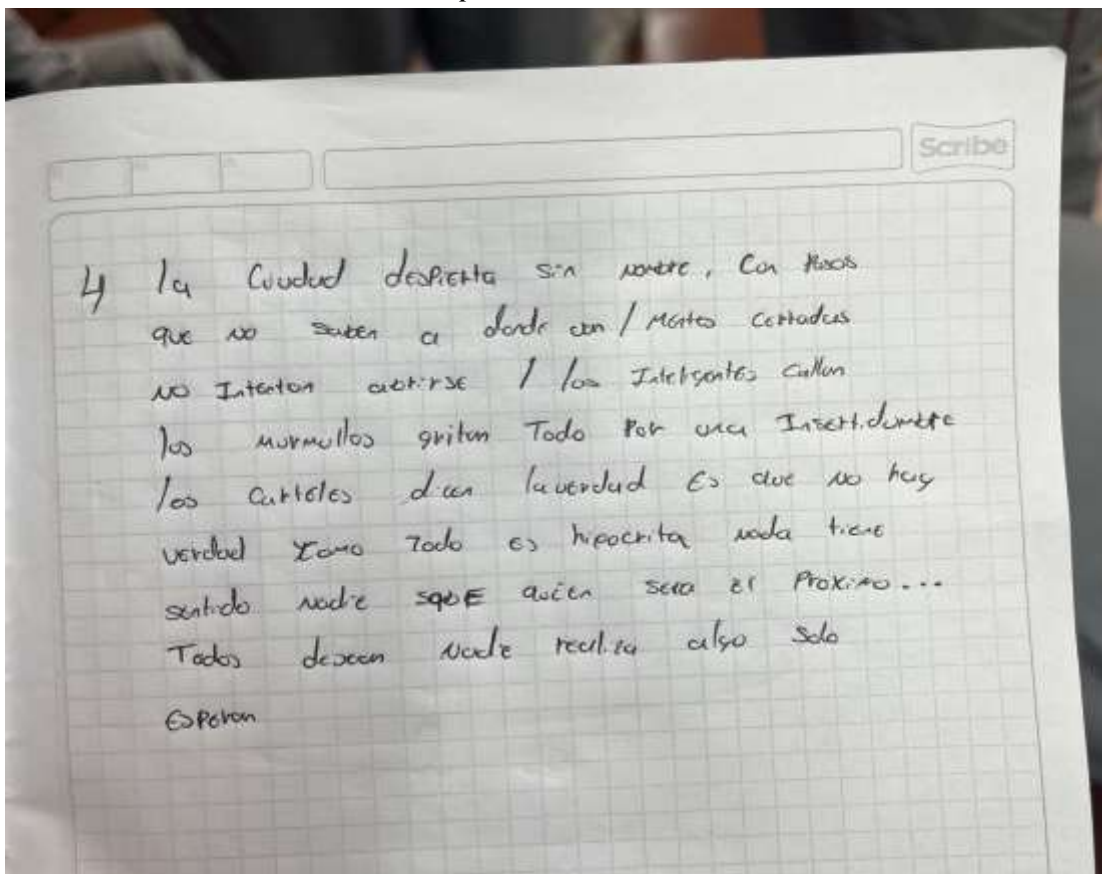 Scribe
4 la Ciudad despierta sin nombre, Con Pasos
que no saben a donde van / Mentes Cerradas
no Intentan abrirse / los Inteligentes Callan
los murmullos gritan Todo Por una Insertidumbre
los Carteles dicen la verdad Es que no hay
verdad Todo es hipocrita nada tiene
sentido nadie sabE quien sera El Proximo...
Todos desean Nadie realiza algo Solo
Esperan